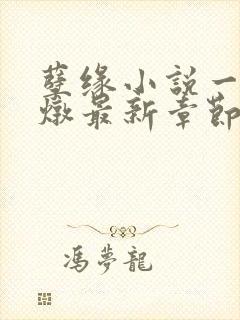 孽缘小説一
燉最新章節
馮夢龍